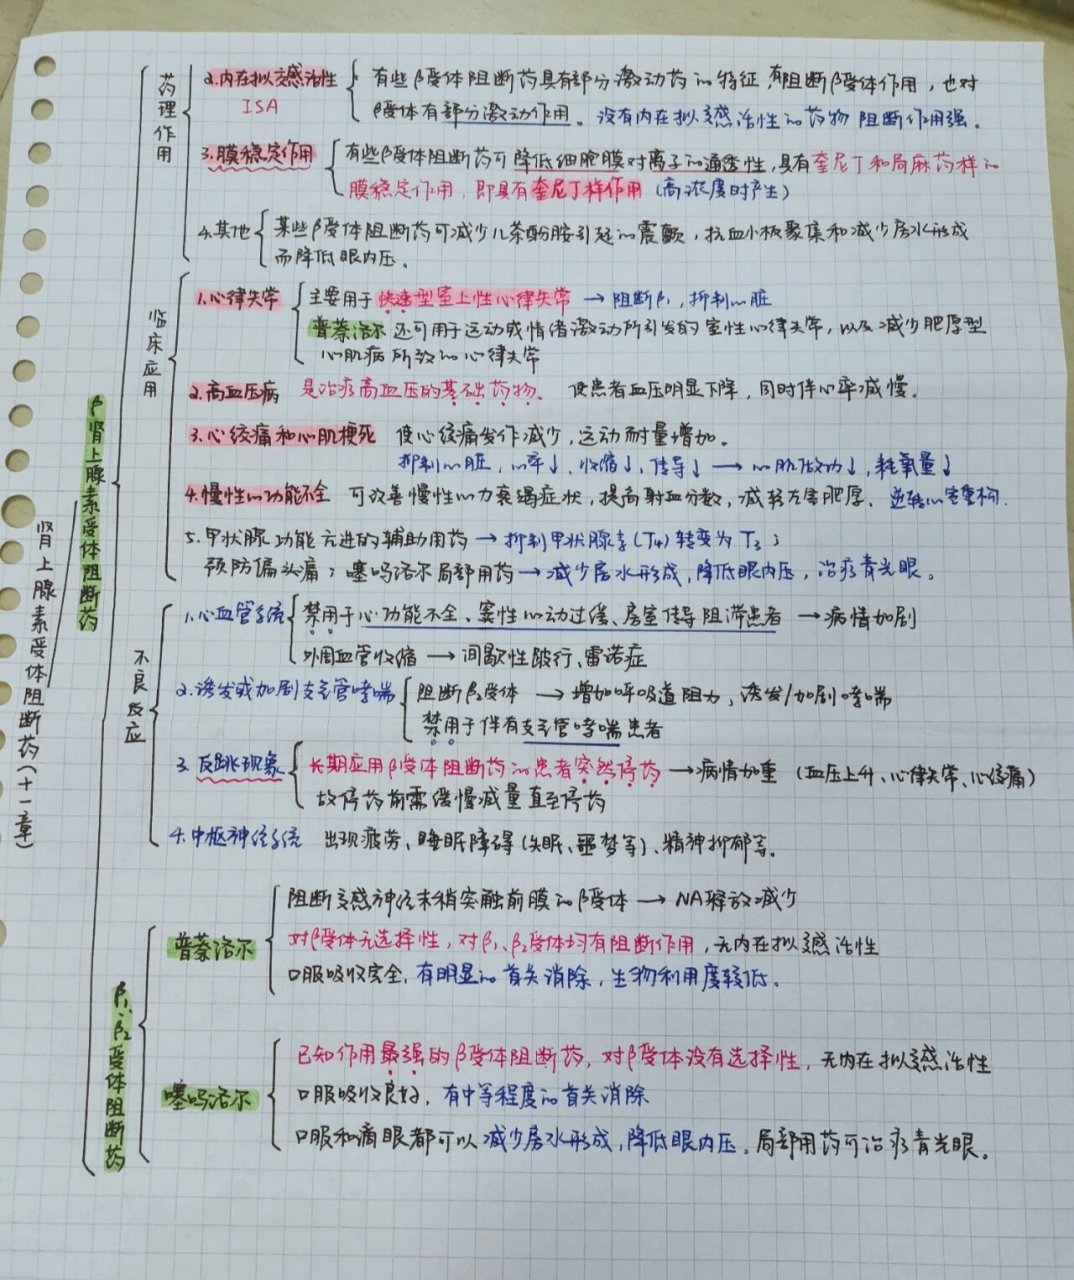 肾上腺素受体阻断药(十一章)
β肾上腺素受体阻断药
药理作用
2.内在拟交感活性 ISA
有些β受体阻断药具有部分激动药的特征,有阻断β受体作用,也对
β受体有部分激动作用。没有内在拟交感活性的药物阻断作用强。
3.膜稳定作用
有些β受体阻断药可降低细胞膜对离子的通透性,具有奎尼丁和局麻药样的
膜稳定作用,即具有奎尼丁样作用(高浓度时产生)
4.其他
某些β受体阻断药可减少儿茶酚胺引起的震颤,抗血小板聚集和减少房水形成
而降低眼内压。
临床应用
1.心律失常
主要用于快速型室上性心律失常→阻断β₁,抑制心脏
普萘洛尔还可用于运动或情绪激动所引发的室性心律失常,以及减少肥厚型
心肌病所致的心律失常
2.高血压病 是治疗高血压的基础药物。使患者血压明显下降,同时伴心率减慢。
3.心绞痛和心肌梗死 使心绞痛发作减少,运动耐量增加。
抑制心脏,心率↓,收缩↓,传导↓→心肌做功↓,耗氧量↓
4.慢性心功能不全 可改善慢性心力衰竭症状,提高射血分数,减轻左室肥厚、逆转心室重构.
5.甲状腺功能亢进的辅助用药→抑制甲状腺素(T4)转变为T3;
预防偏头痛;噻吗洛尔局部用药→减少房水形成,降低眼内压,治疗青光眼。
不良反应
1.心血管系统
禁用于心功能不全、窦性心动过缓、房室传导阻滞患者→病情加剧
外周血管收缩→间歇性跛行、雷诺症
2.诱发或加剧支气管哮喘
阻断β₂受体→增加呼吸道阻力,诱发/加剧哮喘
禁用于伴有支气管哮喘患者
3.反跳现象
长期应用β受体阻断药的患者突然停药→病情加重(血压上升、心律失常、心绞痛)
故停药前需缓慢减量直至停药
4.中枢神经系统 出现疲劳、睡眠障碍(失眠、噩梦等)、精神抑郁等。
β₁、β₂受体阻断药
普萘洛尔
阻断交感神经末梢突触前膜的β受体→NA释放减少
对β受体无选择性,对β₁、β₂受体均有阻断作用,无内在拟交感活性
口服吸收完全,有明显的首关消除,生物利用度较低。
噻吗洛尔
已知作用最强的β受体阻断药,对β受体没有选择性,无内在拟交感活性
口服吸收良好,有中等程度的首关消除
口服和滴眼都可以减少房水形成,降低眼内压。局部用药可治疗青光眼。